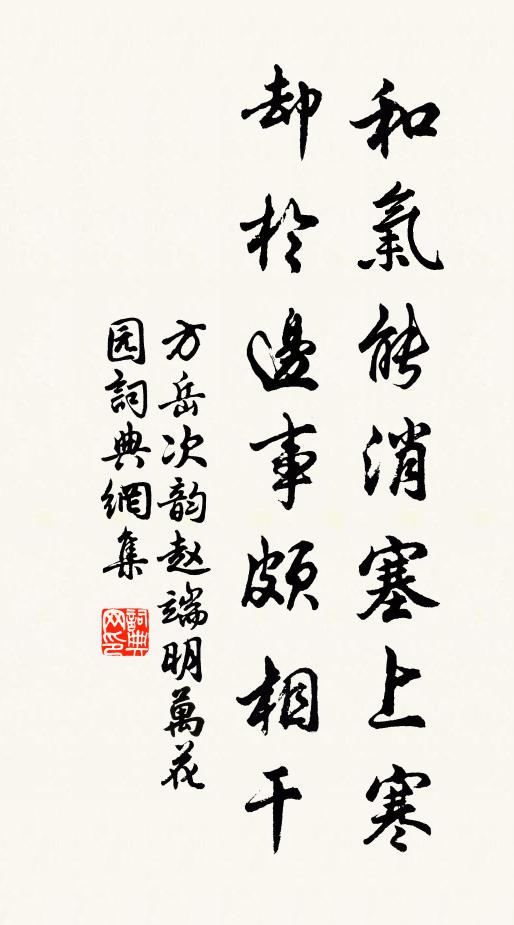 和氣能消塞上寒
却於邊事頗相干
方岳次韵赵端明萬花
园詞典網集
詞典网印